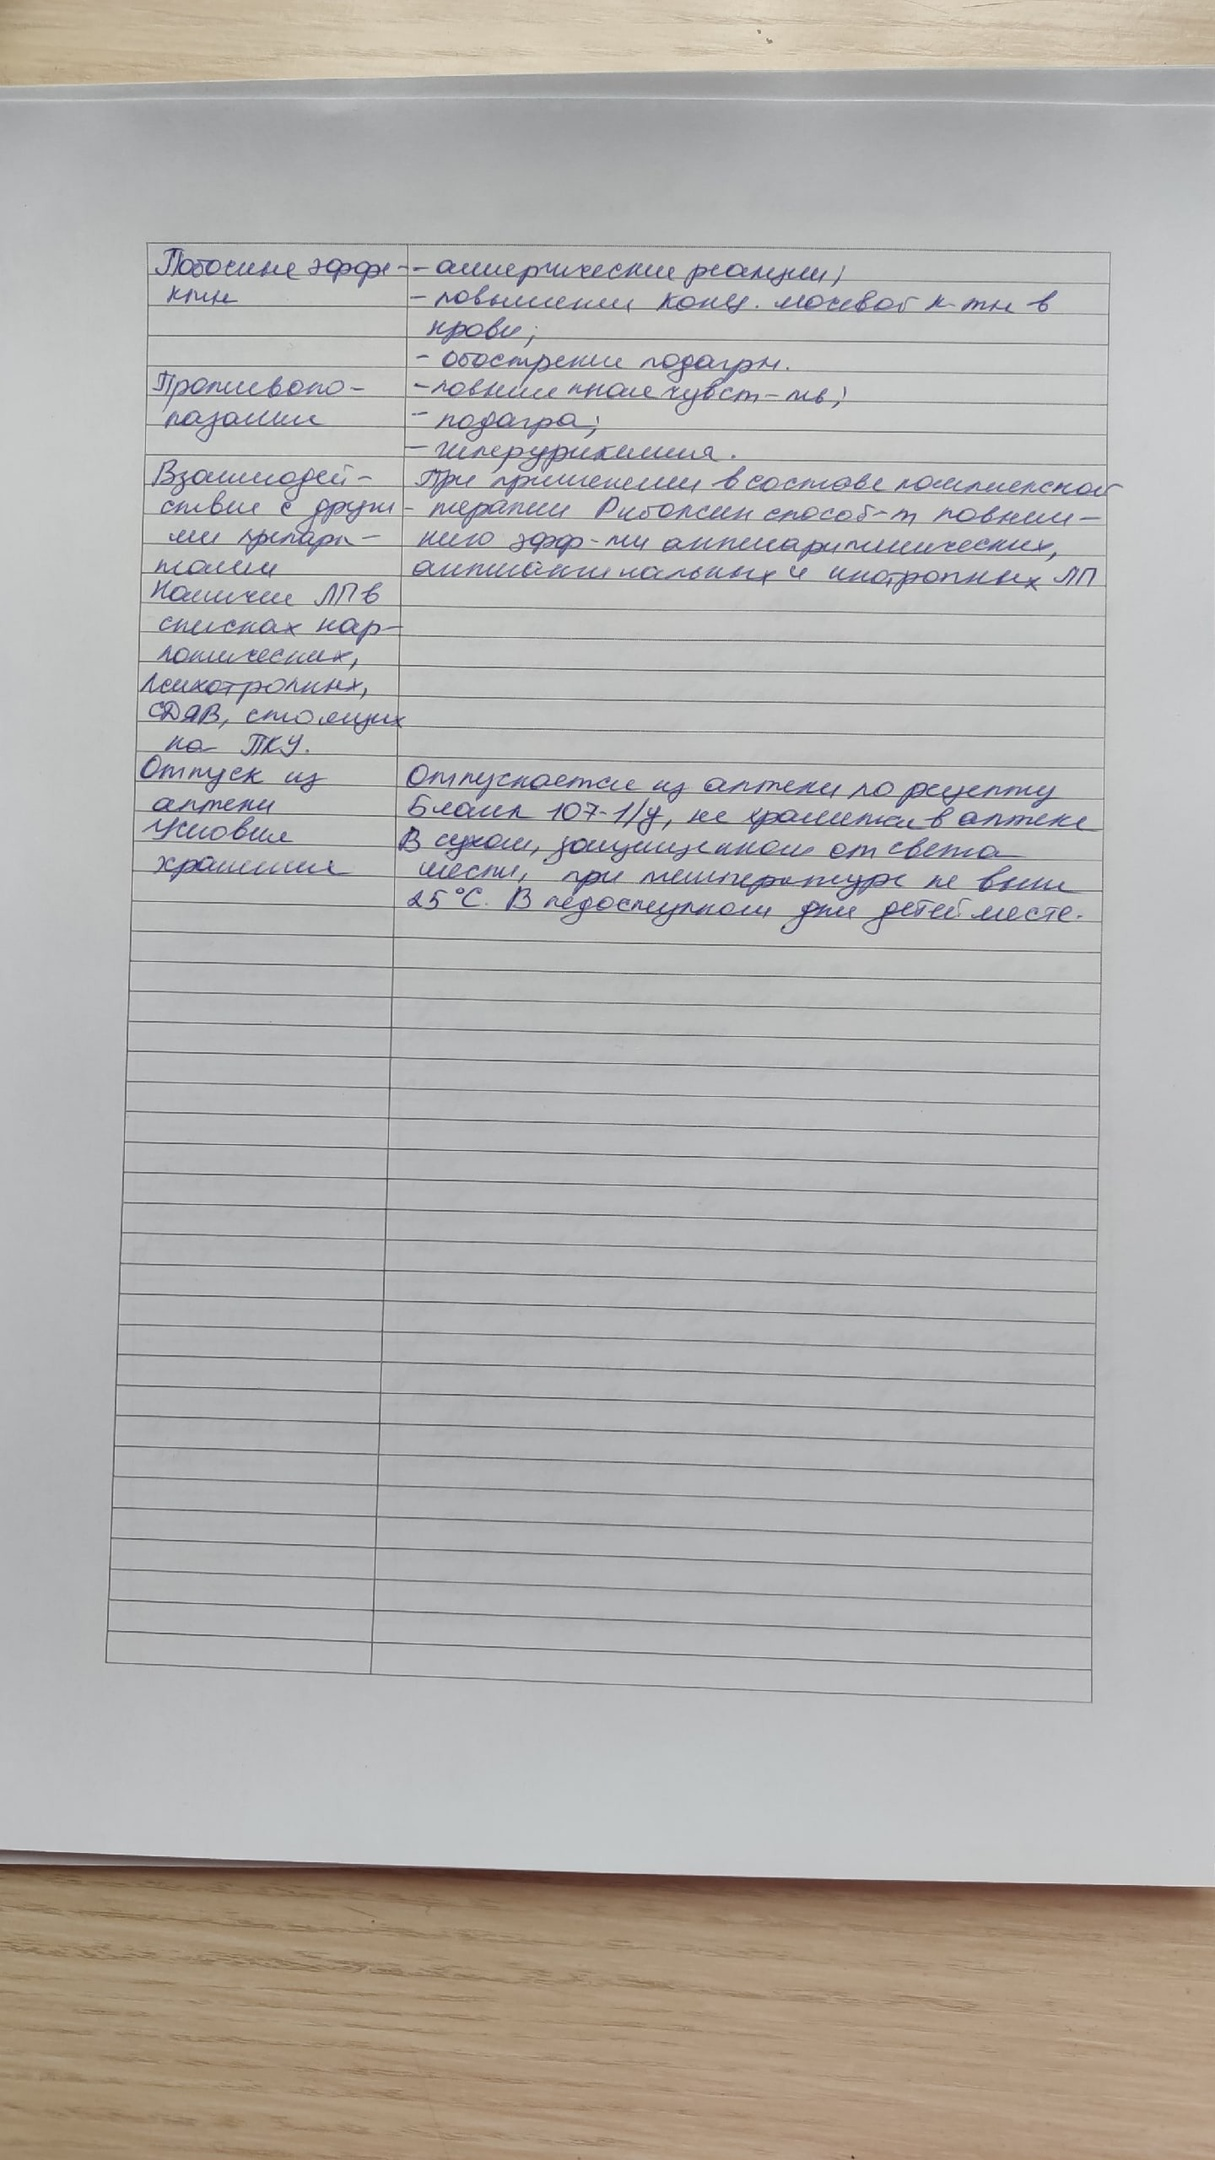 Побочные эффе- - аллергические реакции;
кты - повышение конц. мочевой к-ты в
крови;
- обострение подагры.
Противопо- - повышенная чувст-ть;
казания - подагра;
- гиперурикемия.
Взаимодей- При применении в составе комплексной
ствие с други- терапии Рибоксин способ-т повыше-
ми препара- нию эфф-ти антиаритмических,
тами антиангинальных и инотропных ЛП
Наличие ЛП в
списках нар-
котических,
психотропных,
СДЯВ, стоящих
на ПКУ.
Отпуск из Отпускается из аптеки по рецепту
аптеки Бланк 107-1/у, не хранится в аптеке
Условия В сухом, защищенном от света
хранения месте, при температуре не выше
25°С. В недоступном для детей месте.